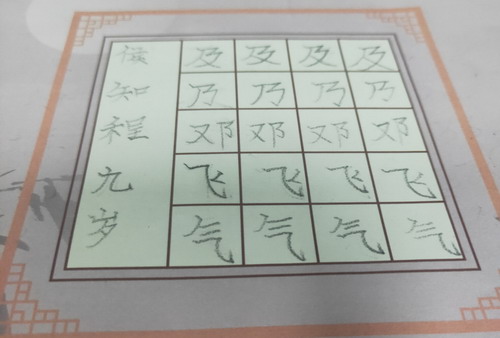 知程九岁
及及及及
乃乃乃乃
邓邓邓邓
飞飞飞飞
气气气气